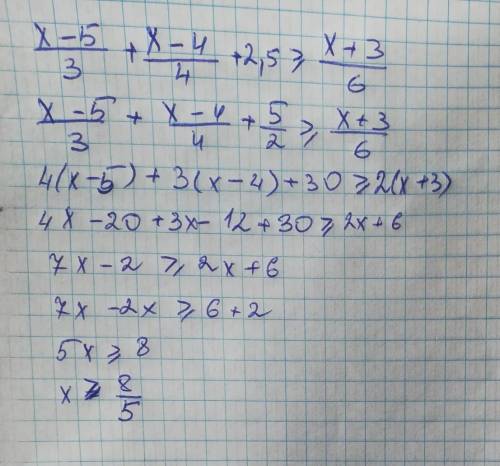 (x-5)/3 + (x-4)/4 + 2,5 ≥ (x+3)/6
(x-5)/3 + (x-4)/4 + 5/2 ≥ (x+3)/6
4(x-5) + 3(x-4) + 30 ≥ 2(x+3)
4x - 20 + 3x - 12 + 30 ≥ 2x + 6
7x - 2 ≥ 2x + 6
7x - 2x ≥ 6 + 2
5x ≥ 8
x ≥ 8/5